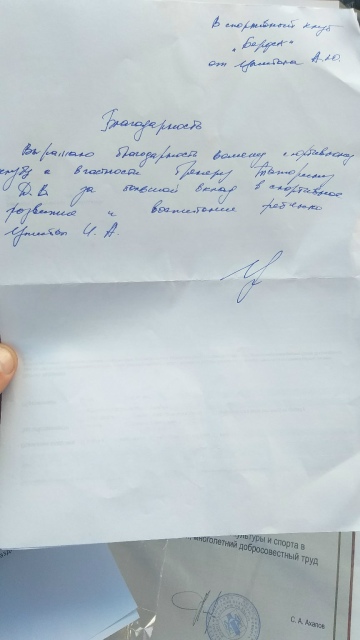 В спортивный клуб
„Беркут"
от А.Ю.
Благодарность
Выражаю благодарность вашему спортивному
клубу в частности тренеру
Д.В. за большой вклад в спортивное
развитие и воспитание ребенка
И. А.
культуры и спорта в
многолетний добросовестный труд
С. А. Ахапов